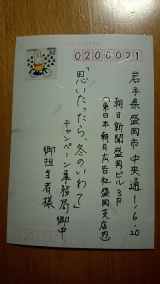 0200021
岩手県盛岡市中央通1-6-20
朝日新聞盛岡ビル3F
(東日本朝日広告社盛岡支店内)
「思いたったら、冬のいわて」
キャンペーン事務局御中
御担当者様